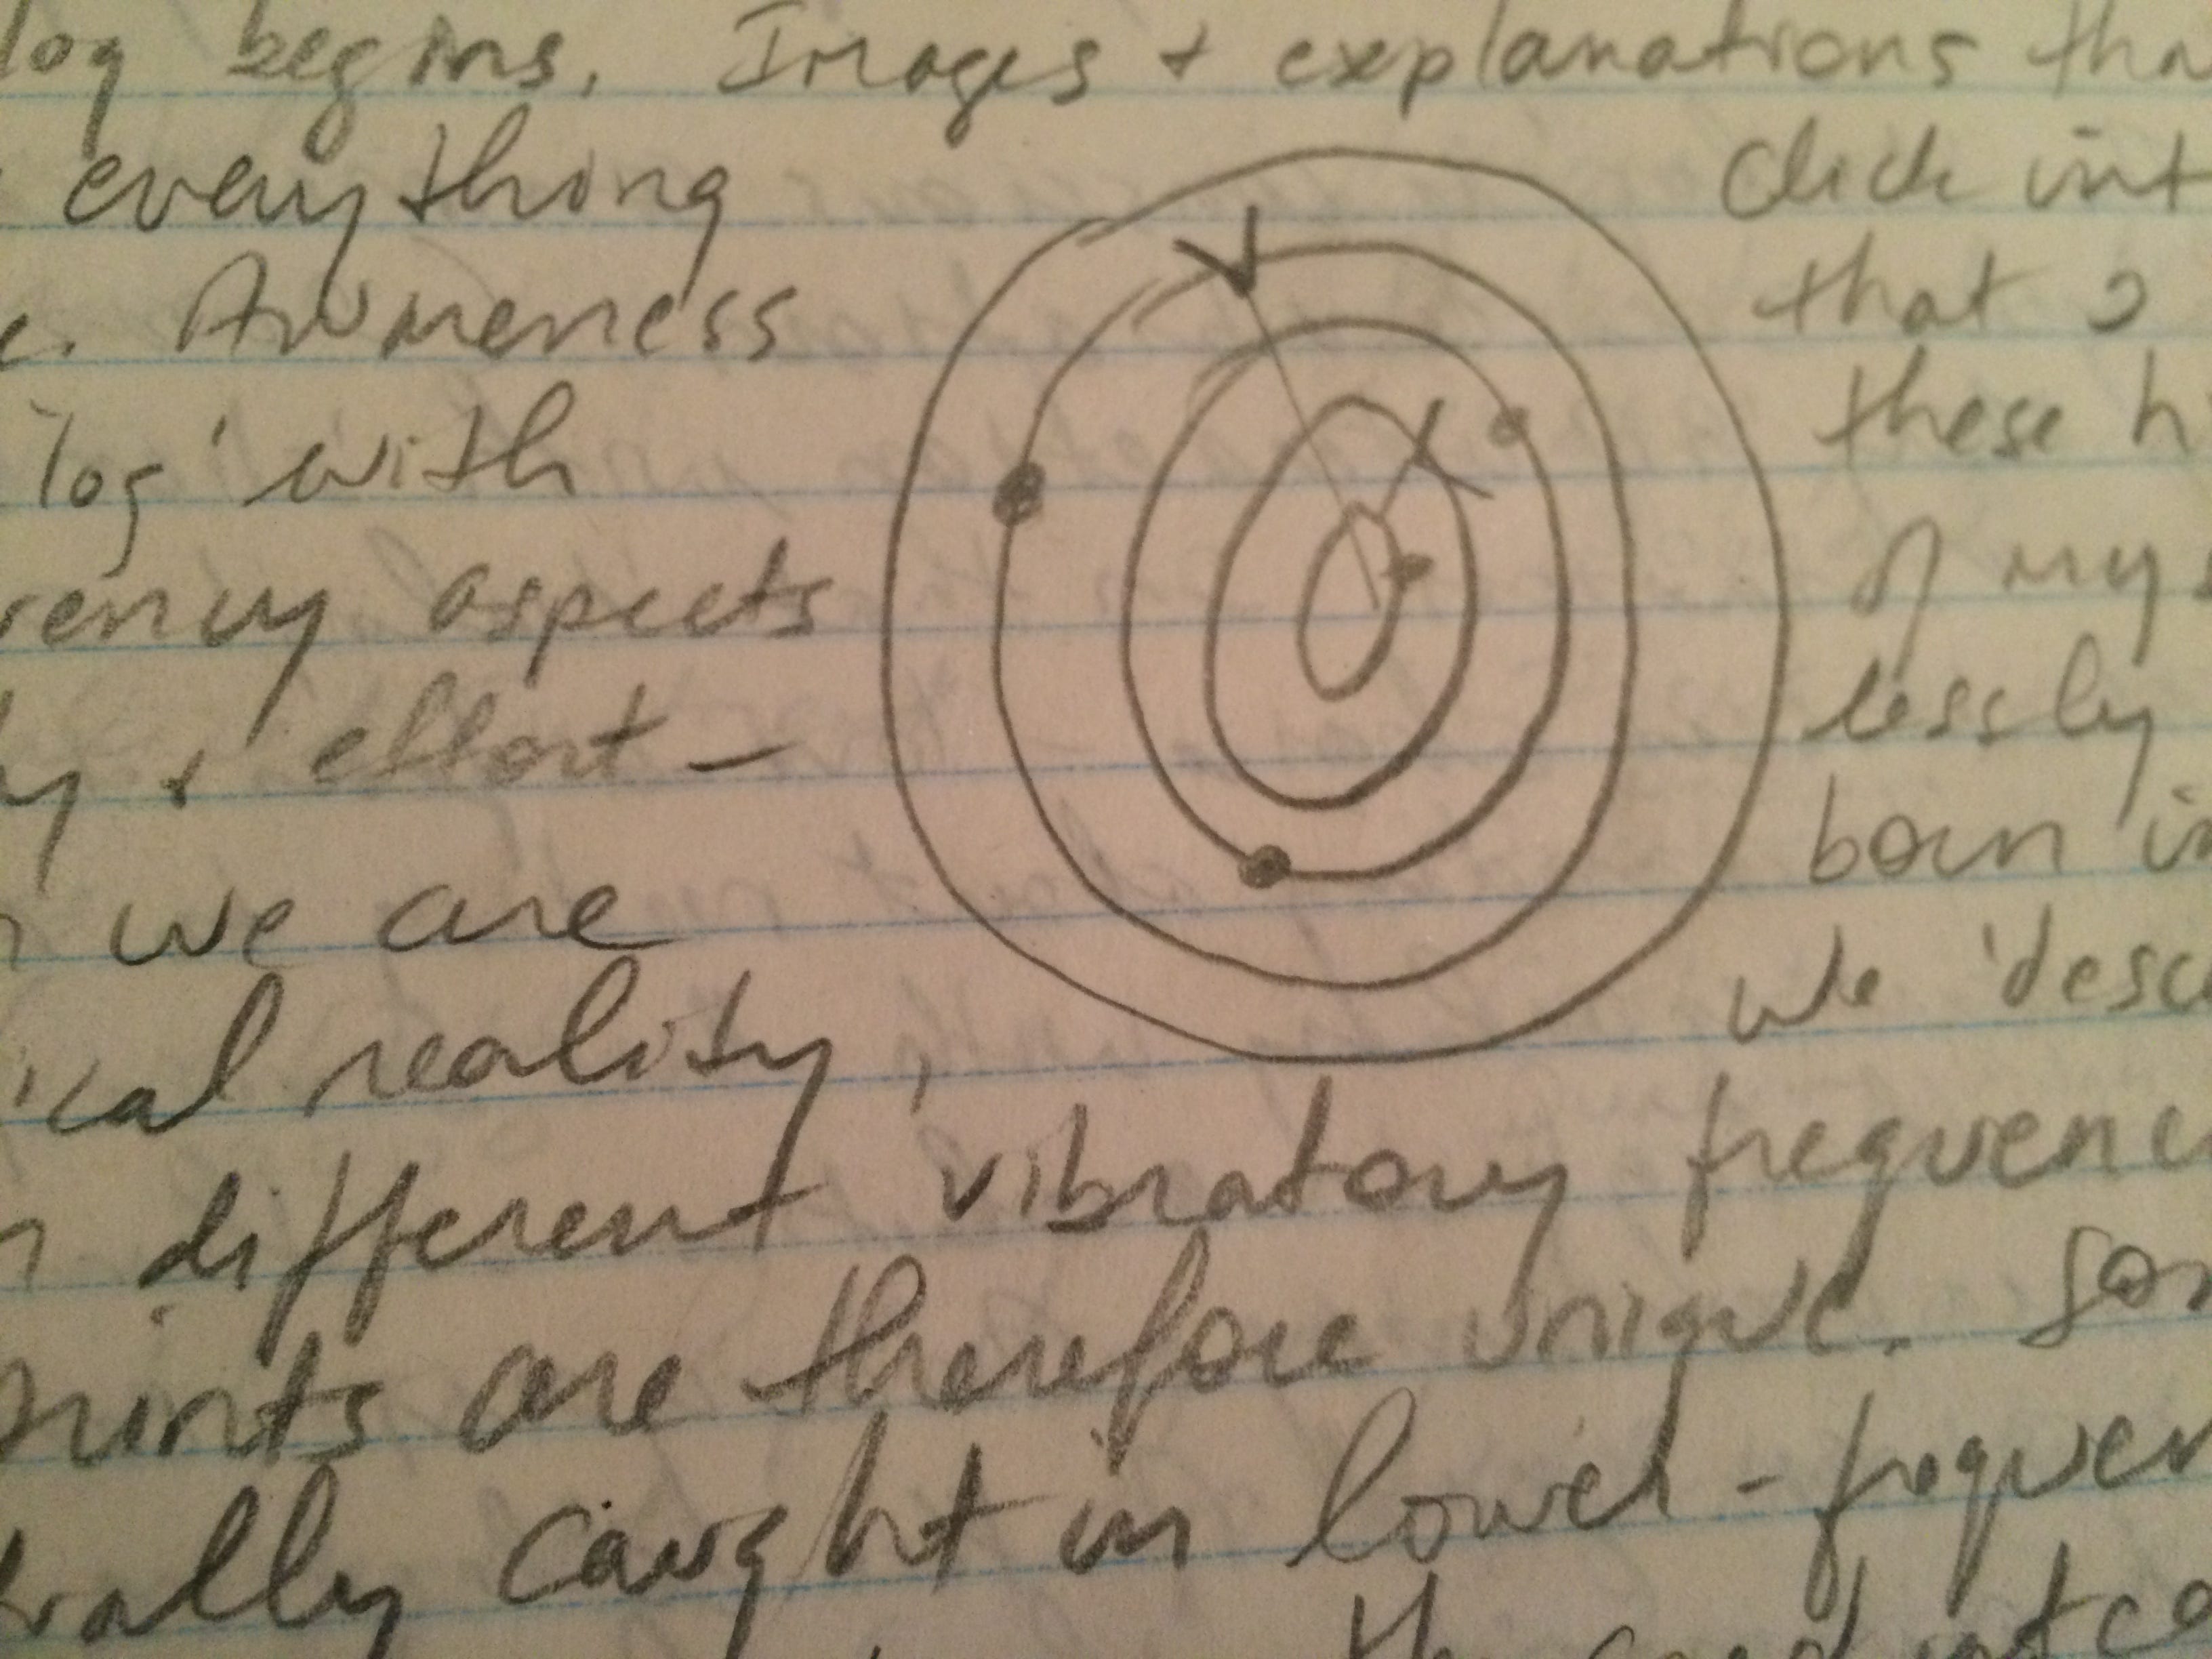 log begins. Images + explanations tha
everything click int
e. Awareness that
'log' with these h
rency aspects of my s
y + effort - lessly
we are born in
ical reality, we 'desc
n different vibratory frequenc
rints are therefore unique. Som
rally caught in lower-frequen